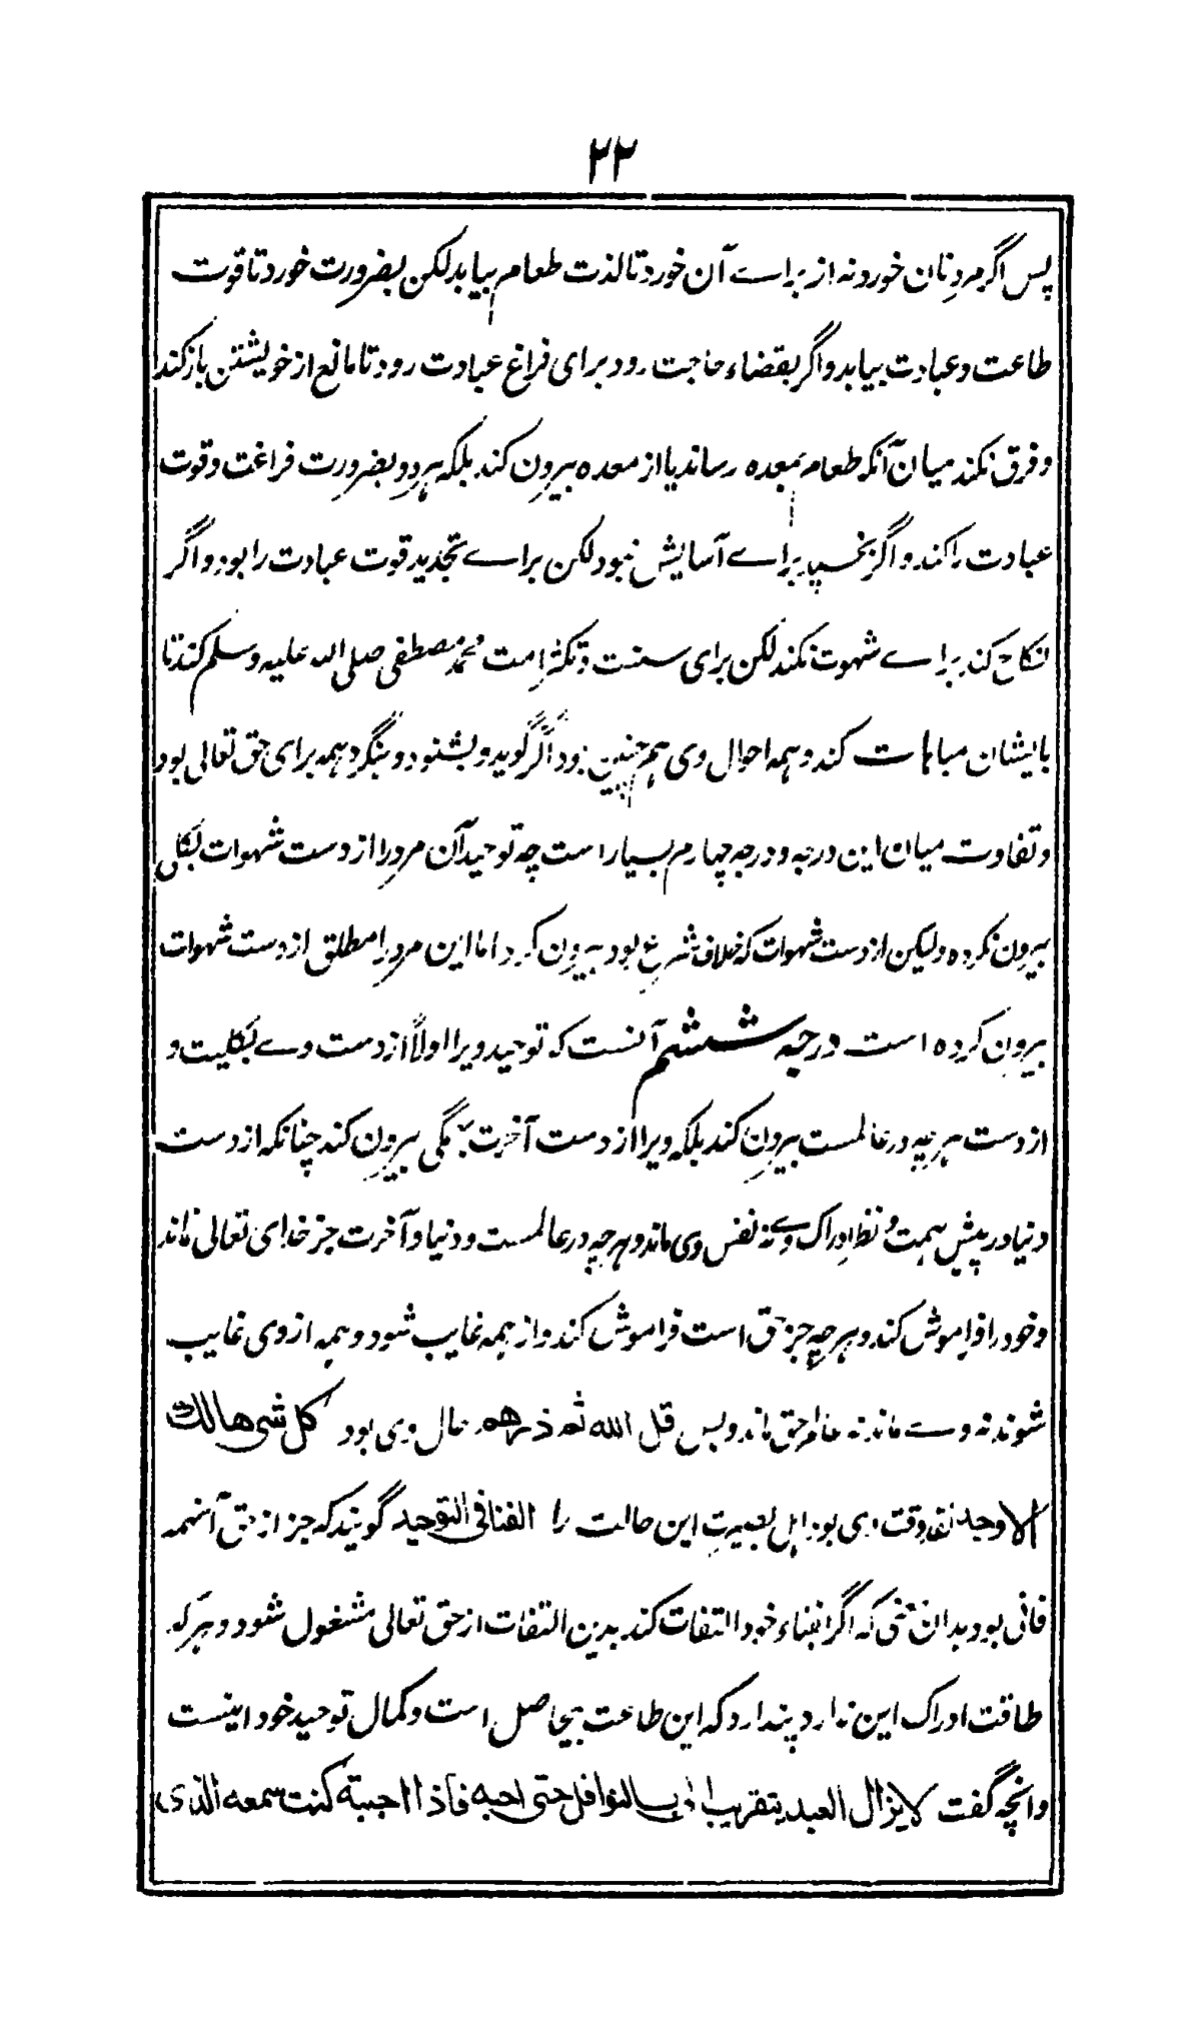 ۲۲
پس اگر مرد نان خورد نه از براے آن خورد تا لذت طعام بیابد لکن بضرورت خورد تا قوت
طاعت و عبادت بیابد و اگر بقضاء حاجت رود برای فراغ عبادت رود تا مانع از خویشتن باز کند
و فرق نکند میان آنکه طعام بمعده رساند یا از معده بیرون کند بلکه هر دو بضرورت فراغت و قوت
عبادت را کند و اگر بخسپد براے آسایش نبود لکن براے تجدید قوت عبادت را بود و اگر
نکاح کند براے شهوت نکند لکن برای سنت و تکثر امت محمد مصطفی صلی الله علیه وسلم کند تا
بایشان مباهات کند و همه احوال وی هم چنین بود اگر گوید و بشنود و بنگرد همه برای حق تعالی بود
و تفاوت میان این درجه و درجه چهارم بسیار است چه توحید آن مرد را از دست شهوات بکلی
بیرون نکرده ولیکن از دست شهوات که خلاف شرع بود بیرون کرد اما این مرد را مطلق از دست شهوات
بیرون کرده است درجه ششم آنست که توحید ویرا اولاً از دست وے بکلیت و
از دست هرچه در عالمست بیرون کند بلکه ویرا از دست آخرت بهمگی بیرون کند چنانکه از دست
دنیا در پیش همت و نظر ادراک وے نه نفس وی ماند و هرچه در عالمست و دنیا و آخرت جز خدای تعالی نماند
و خود را فراموش کند و هرچه جز حق است فراموش کند و از همه غایب شود و همه از وی غایب
شوند نه وے ماند نه عالم حق ماند و بس قل الله ثم ذرهم حال وی بود کل شی هالک
الا وجهه نقد وقت وی بود اهل بصیرت این حالت را الفنا فی التوحید گویند که جز از حق آنهمه
فانی بود بدان معنی که اگر بفناء خود التفات کند بدین التفات از حق تعالی مشغول شود و هر که
طاقت ادراک این ندارد پندارد که این طاعت بیحاصل است و کمال توحید خود اینست
و آنچه گفت لایزال العبد یتقرب الی بالنوافل حتی احبه فاذا احببته کنت سمعه الذی